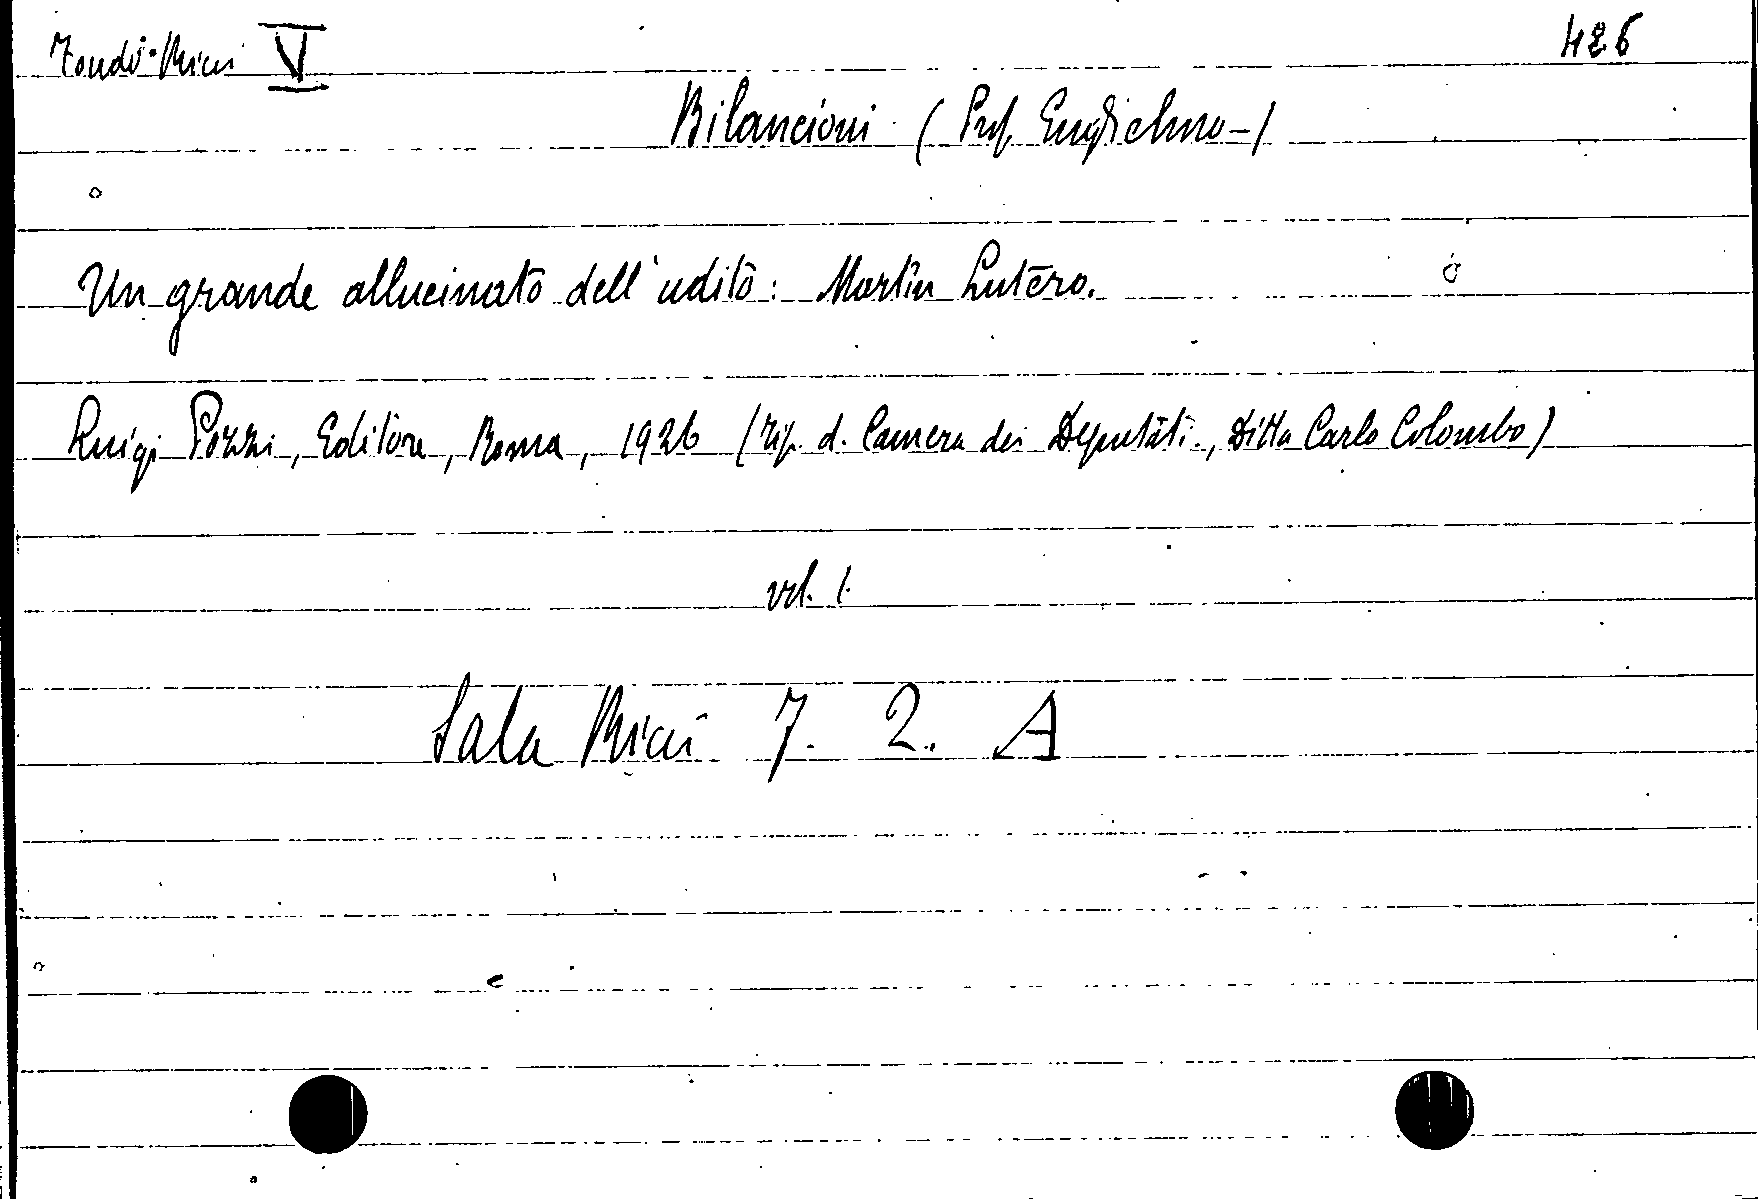 Fondo Ricci V 426
Bilancioni (Prof. Guglielmo-)
Un grande allucinato dell'udito: Martin Lutero.
Luigi Pozzi, Editore, Roma, 1926 (tip. d. Camera dei Deputati, Ditta Carlo Colombo)
vol. 1.
Sala Ricci 7. 2. A